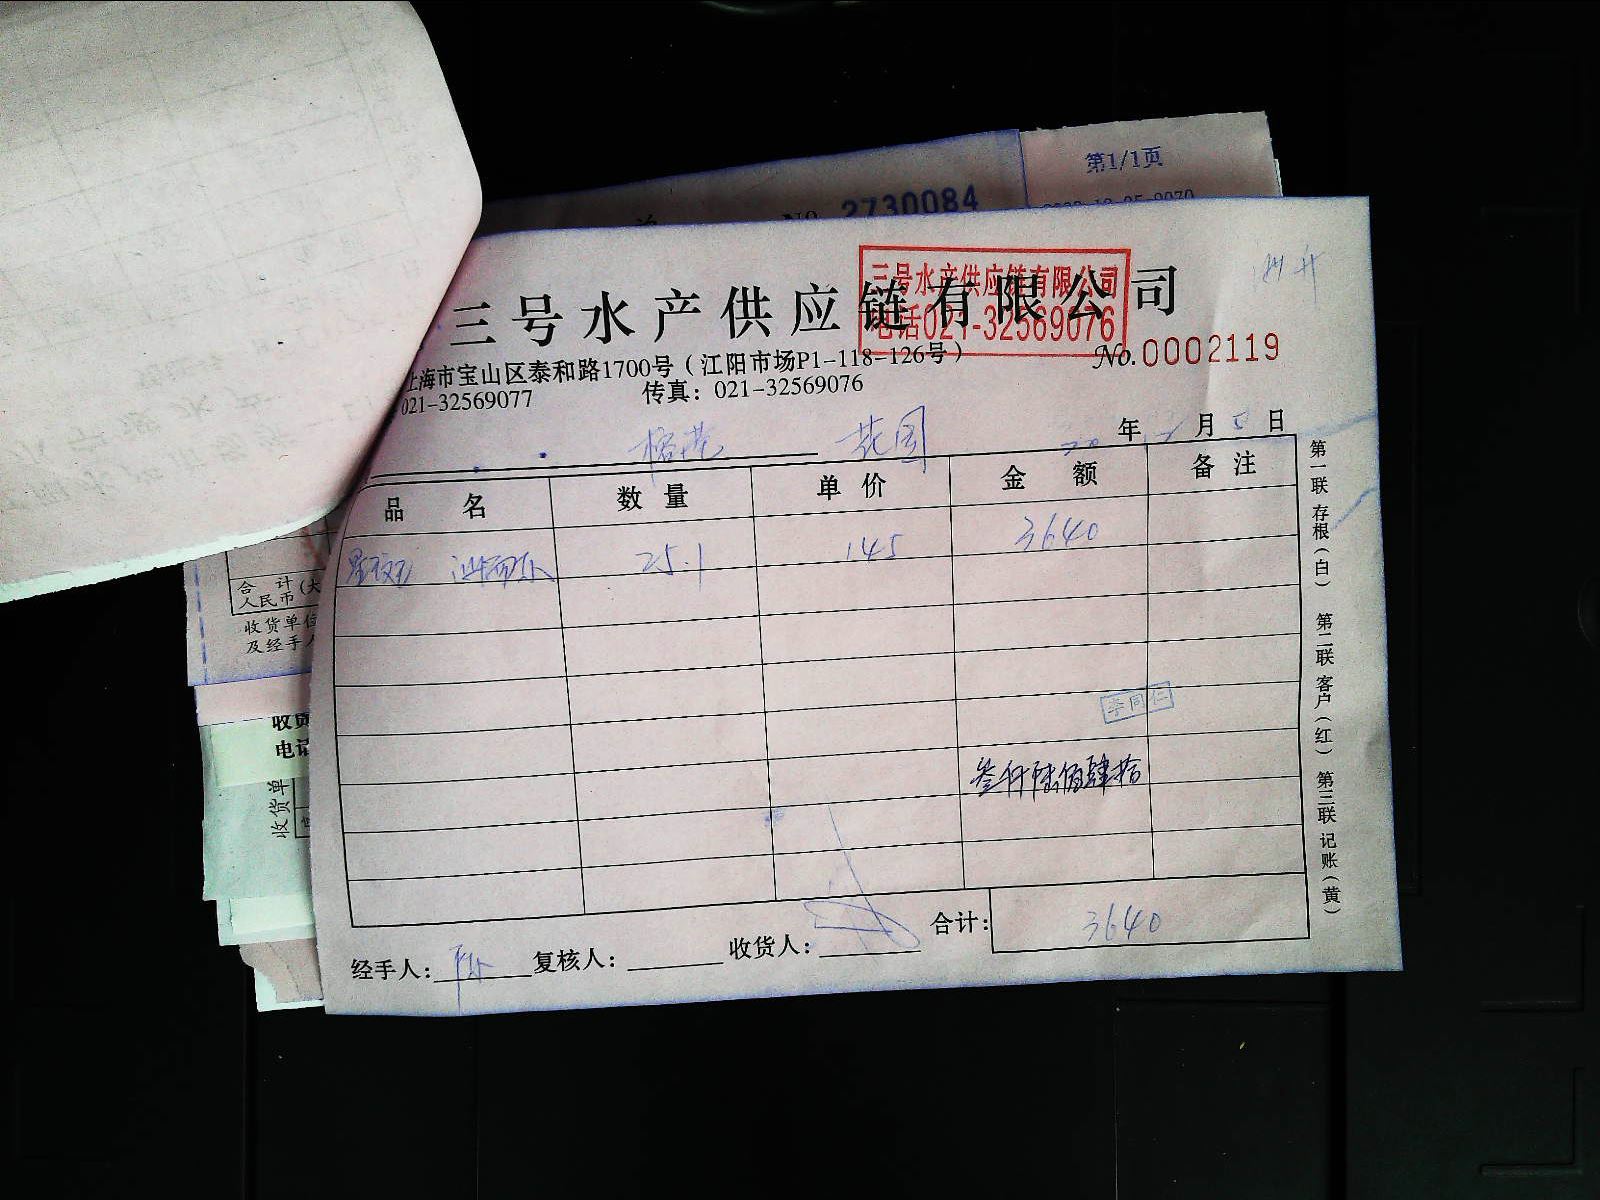 第1/1页
No. 2730084
三号水产供应链有限公司
三号水产供应链有限公司
电话021-32569076
No.0002119
上海市宝山区泰和路1700号（江阳市场P1-118-126号）
021-32569077 传真：021-32569076
花园
20 年 12 月 5 日
品 名 数 量 单 价 金 额 备 注
25.1 145 3640
李同仁
叁仟陆佰肆拾
合计： 3640
经手人： 复核人： 收货人：
第一联 存根（白） 第二联 客户（红） 第三联 记账（黄）
合 计
人民币（大
收货单位
及经手人
收货
电话
收货单